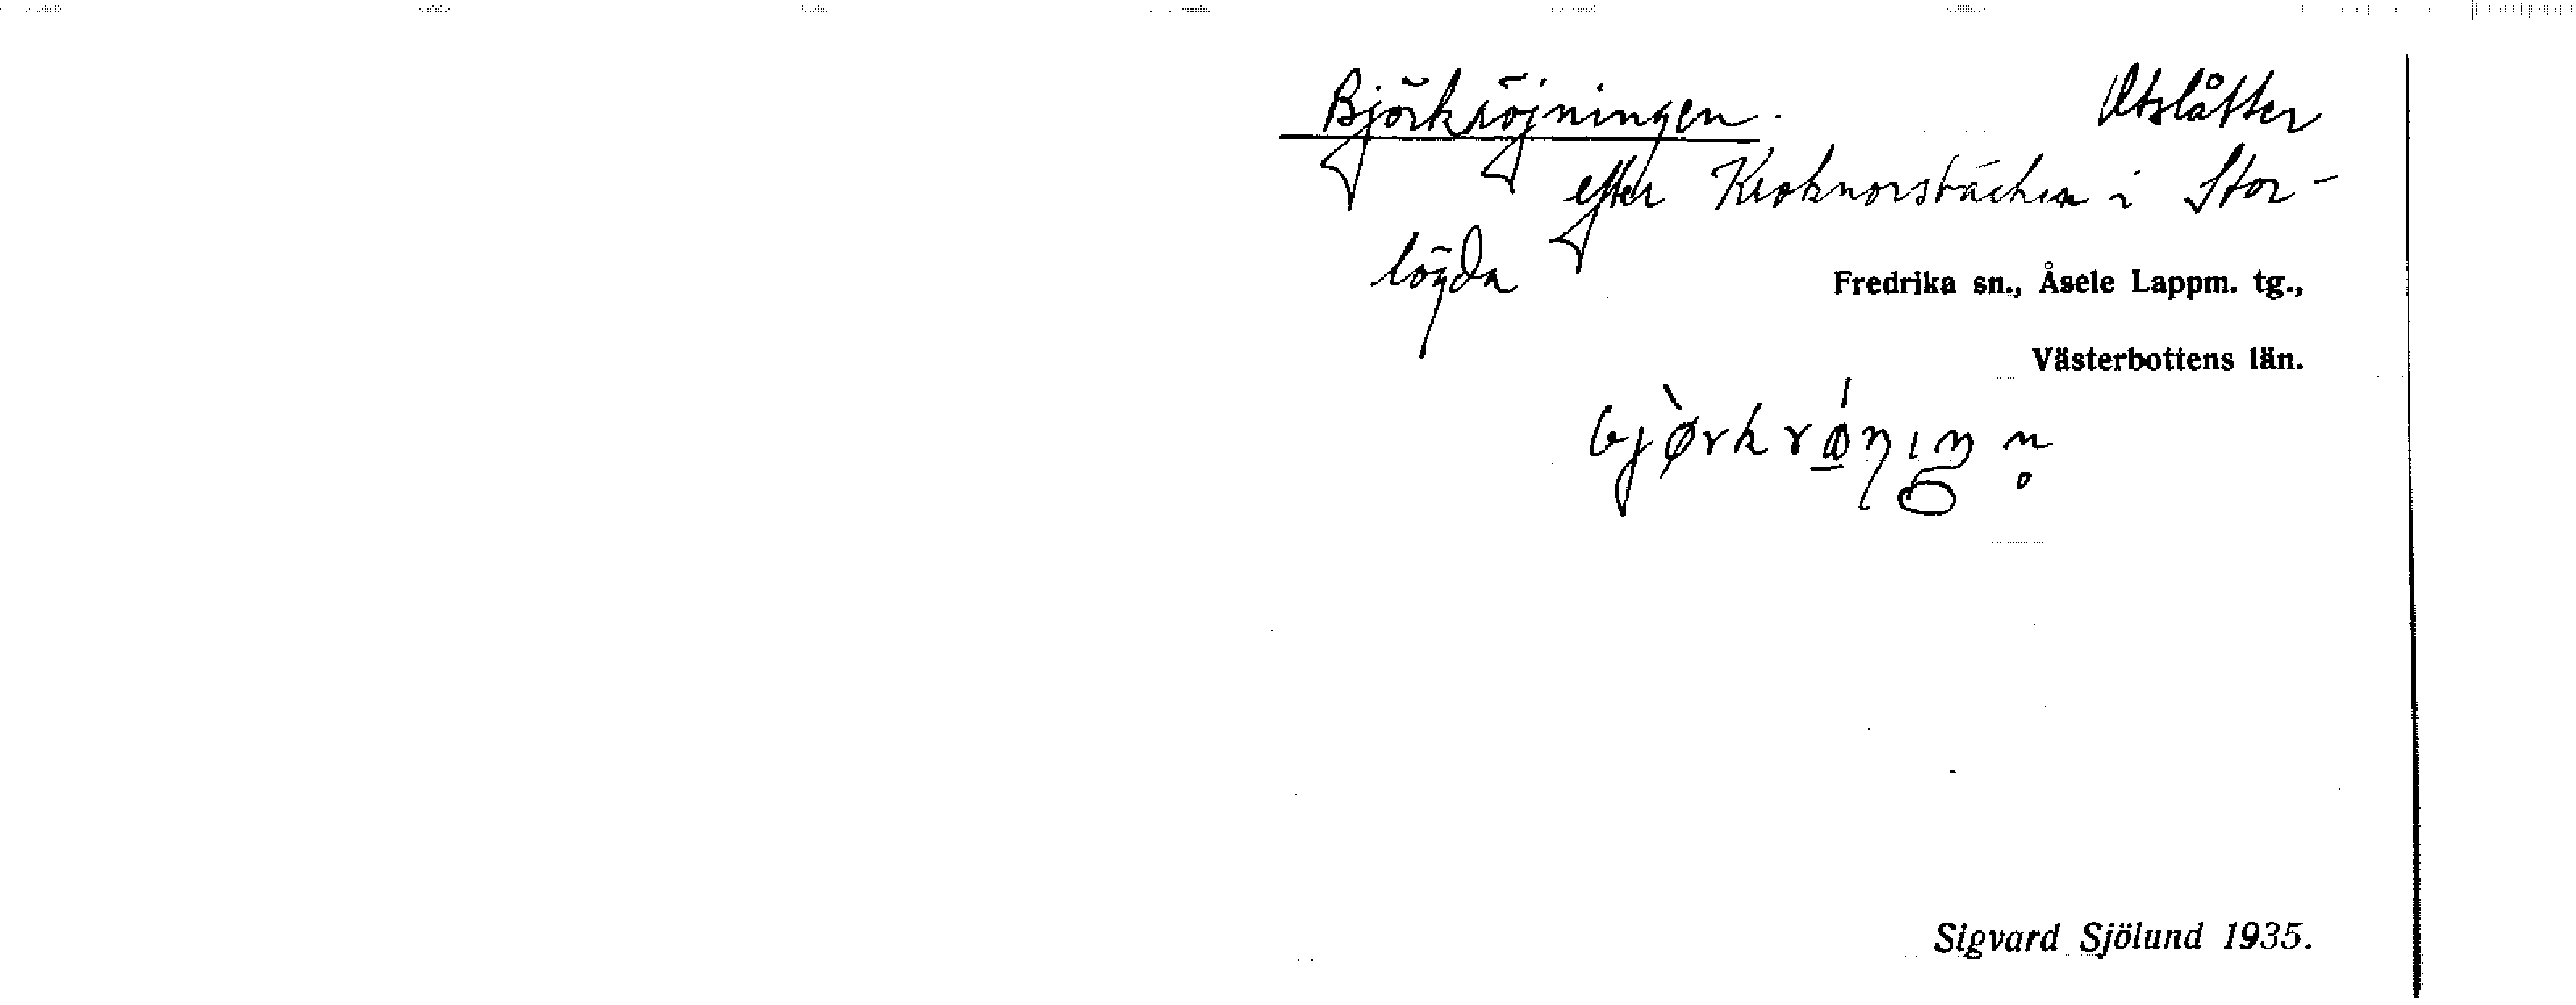 Björkröjningen. Utslåtter
efter Kroknorsbäcken i Stor-
lögda
Fredrika sn., Åsele Lappm. tg.,
Västerbottens län.
Sigvard Sjölund 1935.